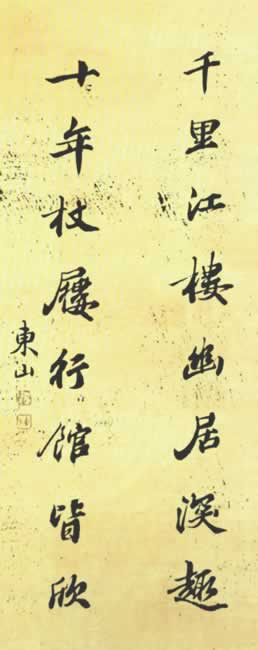 千里江楼幽居深趣
十年杖屦行馆皆欣
東山